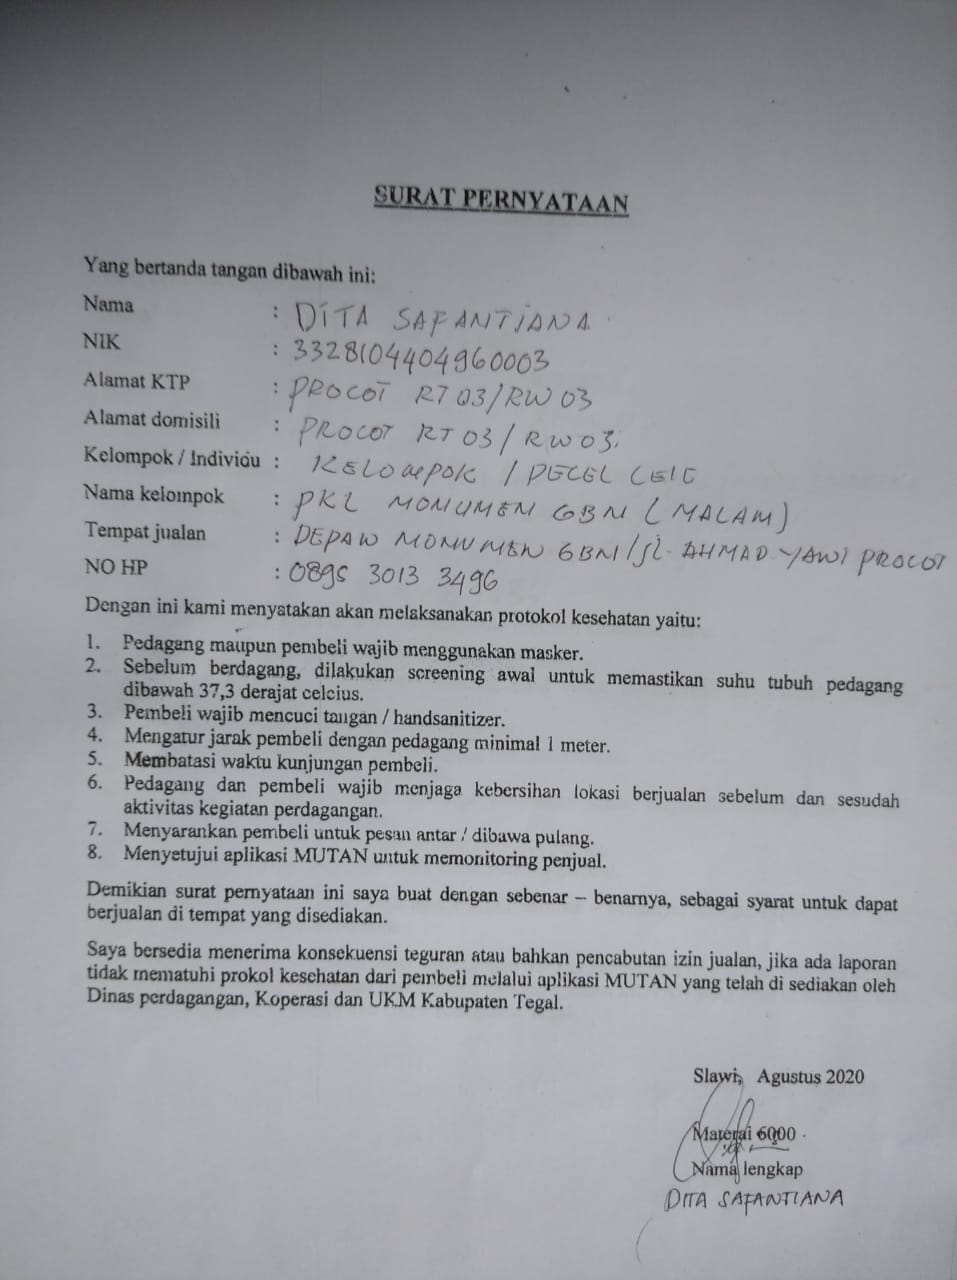 SURAT PERNYATAAN
Yang bertanda tangan dibawah ini:
Nama : DITA SAFANTIANA
NIK : 3328104404960003
Alamat KTP : PROCOT RT 03/RW 03
Alamat domisili : PROCOT RT 03/RW 03.
Kelompok / Individu : KELOMPOK / PECEL LELE
Nama kelompok : PKL MONUMEN GBN (MALAM)
Tempat jualan : DEPAN MONUMEN GBN/JL. AHMAD YANI PROCOT
NO HP : 0895 3013 3496
Dengan ini kami menyatakan akan melaksanakan protokol kesehatan yaitu:
1. Pedagang maupun pembeli wajib menggunakan masker.
2. Sebelum berdagang, dilakukan screening awal untuk memastikan suhu tubuh pedagang
dibawah 37,3 derajat celcius.
3. Pembeli wajib mencuci tangan / handsanitizer.
4. Mengatur jarak pembeli dengan pedagang minimal 1 meter.
5. Membatasi waktu kunjungan pembeli.
6. Pedagang dan pembeli wajib menjaga kebersihan lokasi berjualan sebelum dan sesudah
aktivitas kegiatan perdagangan.
7. Menyarankan pembeli untuk pesan antar / dibawa pulang.
8. Menyetujui aplikasi MUTAN untuk memonitoring penjual.
Demikian surat pernyataan ini saya buat dengan sebenar – benarnya, sebagai syarat untuk dapat
berjualan di tempat yang disediakan.
Saya bersedia menerima konsekuensi teguran atau bahkan pencabutan izin jualan, jika ada laporan
tidak mematuhi prokol kesehatan dari pembeli melalui aplikasi MUTAN yang telah di sediakan oleh
Dinas perdagangan, Koperasi dan UKM Kabupaten Tegal.
Slawi, Agustus 2020
Materai 6000
Nama lengkap
DITA SAFANTIANA